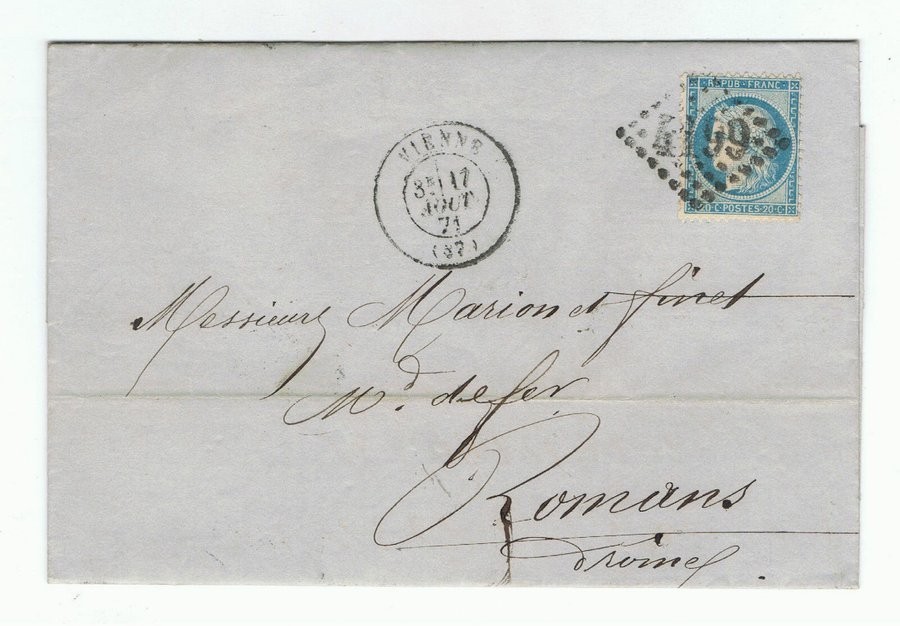 REPUB·FRANC·
20·C·POSTES·20·C·
VIENNE
3E 17
AOUT
71
(37)
Messieurs Marion et finet
Md. de fer
Romans
Drome